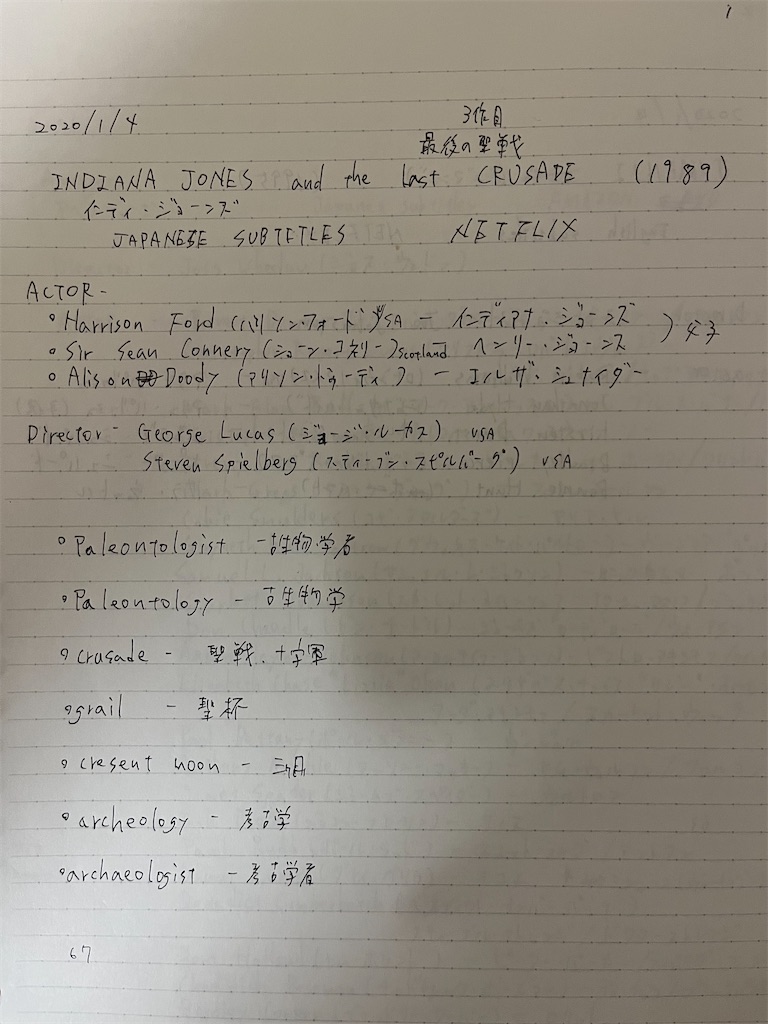 1
2020/1/4
3作目
最後の聖戦
INDIANA JONES and the last CRUSADE (1989)
インディ・ジョーンズ
JAPANESE SUBTETLES NETFLIX
ACTOR-
• Harrison Ford (ハリソン・フォード) USA - インディアナ・ジョーンズ
• Sir Sean Connery (ショーン・コネリー) Scotland ヘンリー・ジョーンズ ) 父子
• Alison Doody (アリソン・ドゥーディ) - エルザ・シュナイダー
Director - George Lucas (ジョージ・ルーカス) USA
Steven Spielberg (スティーブン・スピルバーグ) USA
• Paleontologist - 古生物学者
• Paleontology - 古生物学
• crusade - 聖戦、十字軍
• grail - 聖杯
• cresent moon - 三日月
• archeology - 考古学
• archaeologist - 考古学者
67